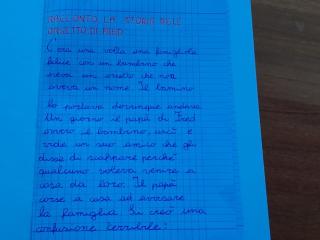 RACCONTO LA STORIA DELL'
ORSETTO DI FRED
C'era una volta una famiglia
felice con un bambino che
aveva un orsetto che non
aveva un nome. Il bambino
lo portava dovunque andava
Un giorno il papà di Fred
ovvero il bambino uscì e
vide un suo amico che gli
disse di scappare perché
qualcuno voleva venire a
casa da loro. Il papà
corse a casa ad avvisare
la famiglia. Si creò una
confusione terribile!